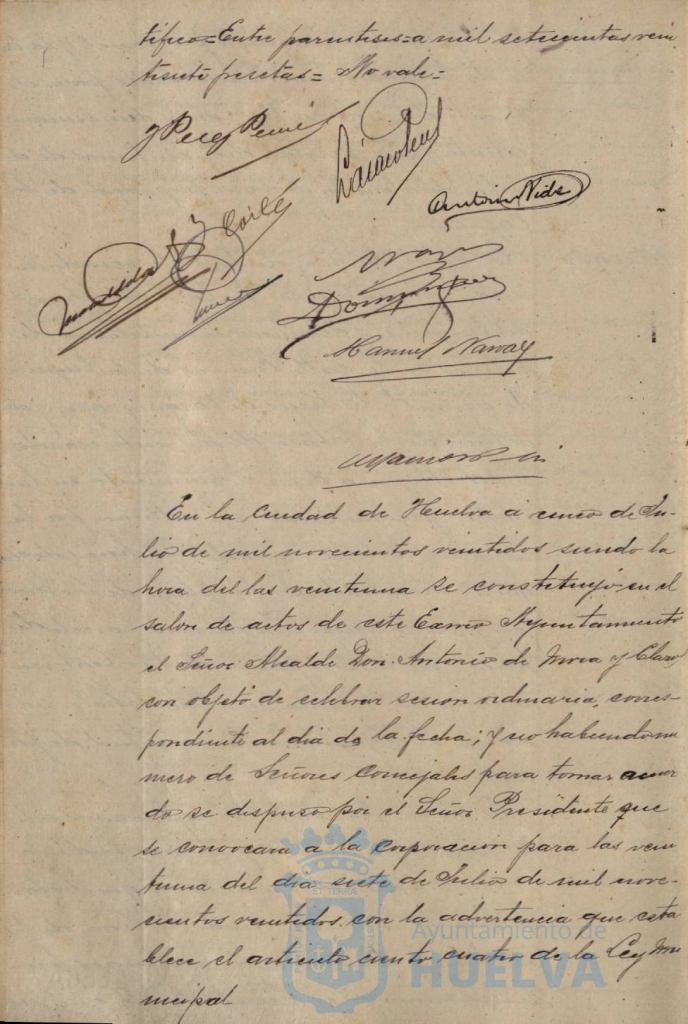 tifico=Entre parentesis=a mil setecientas vein
tisiete pesetas= No vale=
J Perez
Antonio Vide
Dominguez
Manuel Narvaez
En la Ciudad de Huelva á cinco de Ju-
lio de mil novecientos veintidos siendo la
hora del las veintiuna se constituyó en el
salon de actos de este Excmo Ayuntamiento
el Señor Alcalde Don Antonio de Mora y Claro
con objeto de celebrar sesion ordinaria, corres-
pondiente al dia de la fecha; y no habiendo nu
mero de Señores Concejales para tomar acuer
do se dispuso por el Señor Presidente que
se convocara a la corporacion para las vein
tiuna del dia siete de Julio de mil nove-
cientos veintidos con la advertencia que esta
blece el articulo ciento cuatro de la Ley Mu
nicipal
Ayuntamiento de
HUELVA